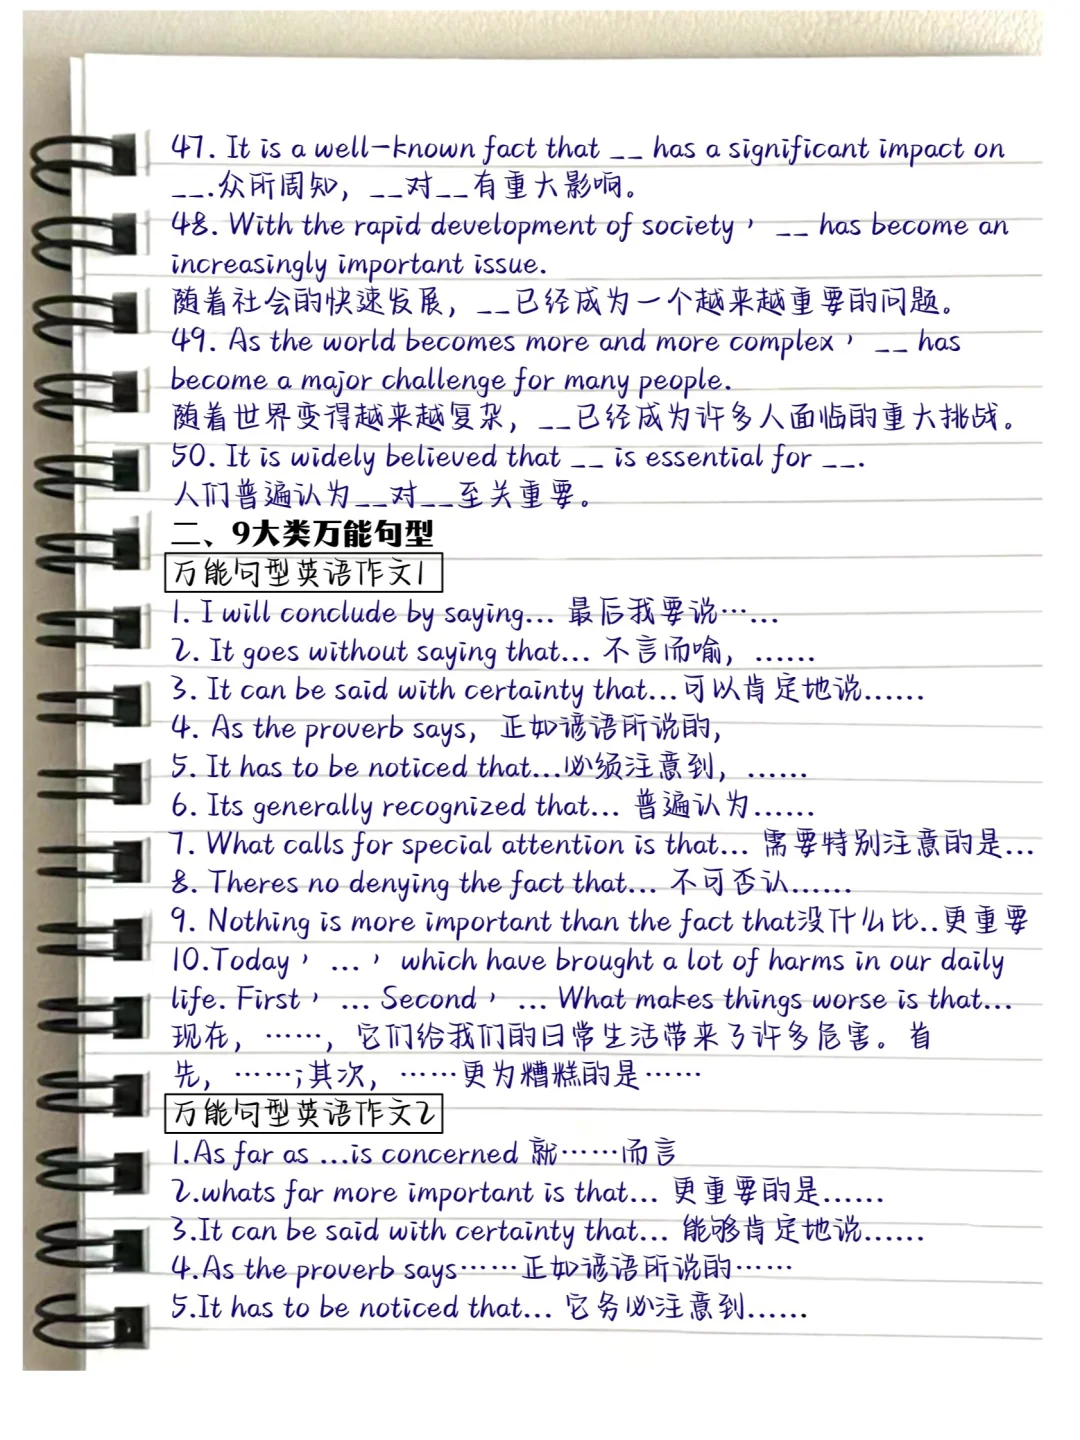 47. It is a well-known fact that __ has a significant impact on
__.众所周知，__对__有重大影响。
48. With the rapid development of society， __ has become an
increasingly important issue.
随着社会的快速发展，__已经成为一个越来越重要的问题。
49. As the world becomes more and more complex， __ has
become a major challenge for many people.
随着世界变得越来越复杂，__已经成为许多人面临的重大挑战。
50. It is widely believed that __ is essential for __.
人们普遍认为__对__至关重要。
二、9大类万能句型
万能句型英语作文1
1. I will conclude by saying... 最后我要说…...
2. It goes without saying that... 不言而喻，......
3. It can be said with certainty that...可以肯定地说......
4. As the proverb says，正如谚语所说的，
5. It has to be noticed that...必须注意到，......
6. Its generally recognized that... 普遍认为......
7. What calls for special attention is that... 需要特别注意的是...
8. Theres no denying the fact that... 不可否认......
9. Nothing is more important than the fact that没什么比..更重要
10.Today， ...， which have brought a lot of harms in our daily
life. First， ... Second， ... What makes things worse is that...
现在，……，它们给我们的日常生活带来了许多危害。首
先，……;其次，……更为糟糕的是……
万能句型英语作文2
1.As far as ...is concerned 就……而言
2.whats far more important is that... 更重要的是......
3.It can be said with certainty that... 能够肯定地说......
4.As the proverb says……正如谚语所说的……
5.It has to be noticed that... 它务必注意到......